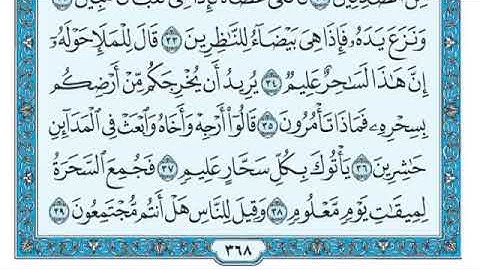 وَنَزَعَ يَدَهُۥ فَإِذَا هِىَ بَيْضَآءُ لِلنَّٰظِرِينَ ٣٣ قَالَ لِلْمَلَإِ حَوْلَهُۥٓ
إِنَّ هَٰذَا لَسَٰحِرٌ عَلِيمٌ ٣٤ يُرِيدُ أَن يُخْرِجَكُم مِّنْ أَرْضِكُم
بِسِحْرِهِۦ فَمَاذَا تَأْمُرُونَ ٣٥ قَالُوٓا۟ أَرْجِهْ وَأَخَاهُ وَٱبْعَثْ فِى ٱلْمَدَآئِنِ
حَٰشِرِينَ ٣٦ يَأْتُوكَ بِكُلِّ سَحَّارٍ عَلِيمٍ ٣٧ فَجُمِعَ ٱلسَّحَرَةُ
لِمِيقَٰتِ يَوْمٍ مَّعْلُومٍ ٣٨ وَقِيلَ لِلنَّاسِ هَلْ أَنتُم مُّجْتَمِعُونَ ٣٩
٣٦٨